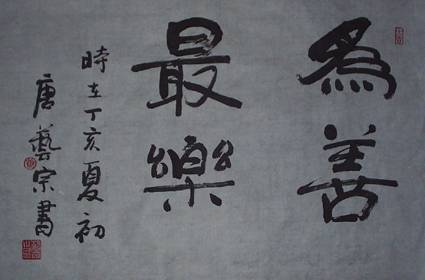 為善
最樂
時在丁亥夏初
唐藝宗書